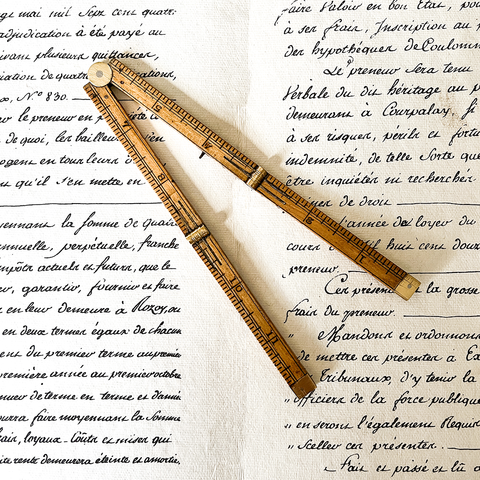 ge mai mil sept cens quatr
adjudication à été payé au
ivant plusieurs quittances,
iation de quatr ations,
x, N.° 830.
le preneur en
de quoi, les bailleur
ogent en tour leurs
qu'il s'en mette en
ennant la somme de quat
nnuelle, perpétuelle, franche
mpôts actuels et futurs, que le
r, garantir, fournir et faire
en leur demeure à Rozoy, ou
en deux termes égaux de chacun
du premier terme au premier
remière année au premier octobre
nuer de terme en terme et d'anné
ourra faire moyennant la somme
ais, loyaux-Coûts et mises qui
rente demeurera éteinte et amortie.
faire Valoir en bon Etat, pou
à ses frais, Inscription au
des hypothéques de Coulomm
Le preneur sera tenu
Verbale du dit héritage au p
demeurans à Courpalay. Il
à ses risques, périls et fortu
indemnité, de telle Sorte que
être inquiétés ni recherchés
de droit
l'année des loyer du
cours huit cens douz
preneur.
Ces présen la grosse
frais du preneur.
Mandons et ordonnons
de mettre ces présentes à Ex
Tribunaux, d'y tenir la
"officiers de la force publique
"en seront légalement Requis
"sceller ces présentes.
Fait et passé et lû a
5
8
10
11